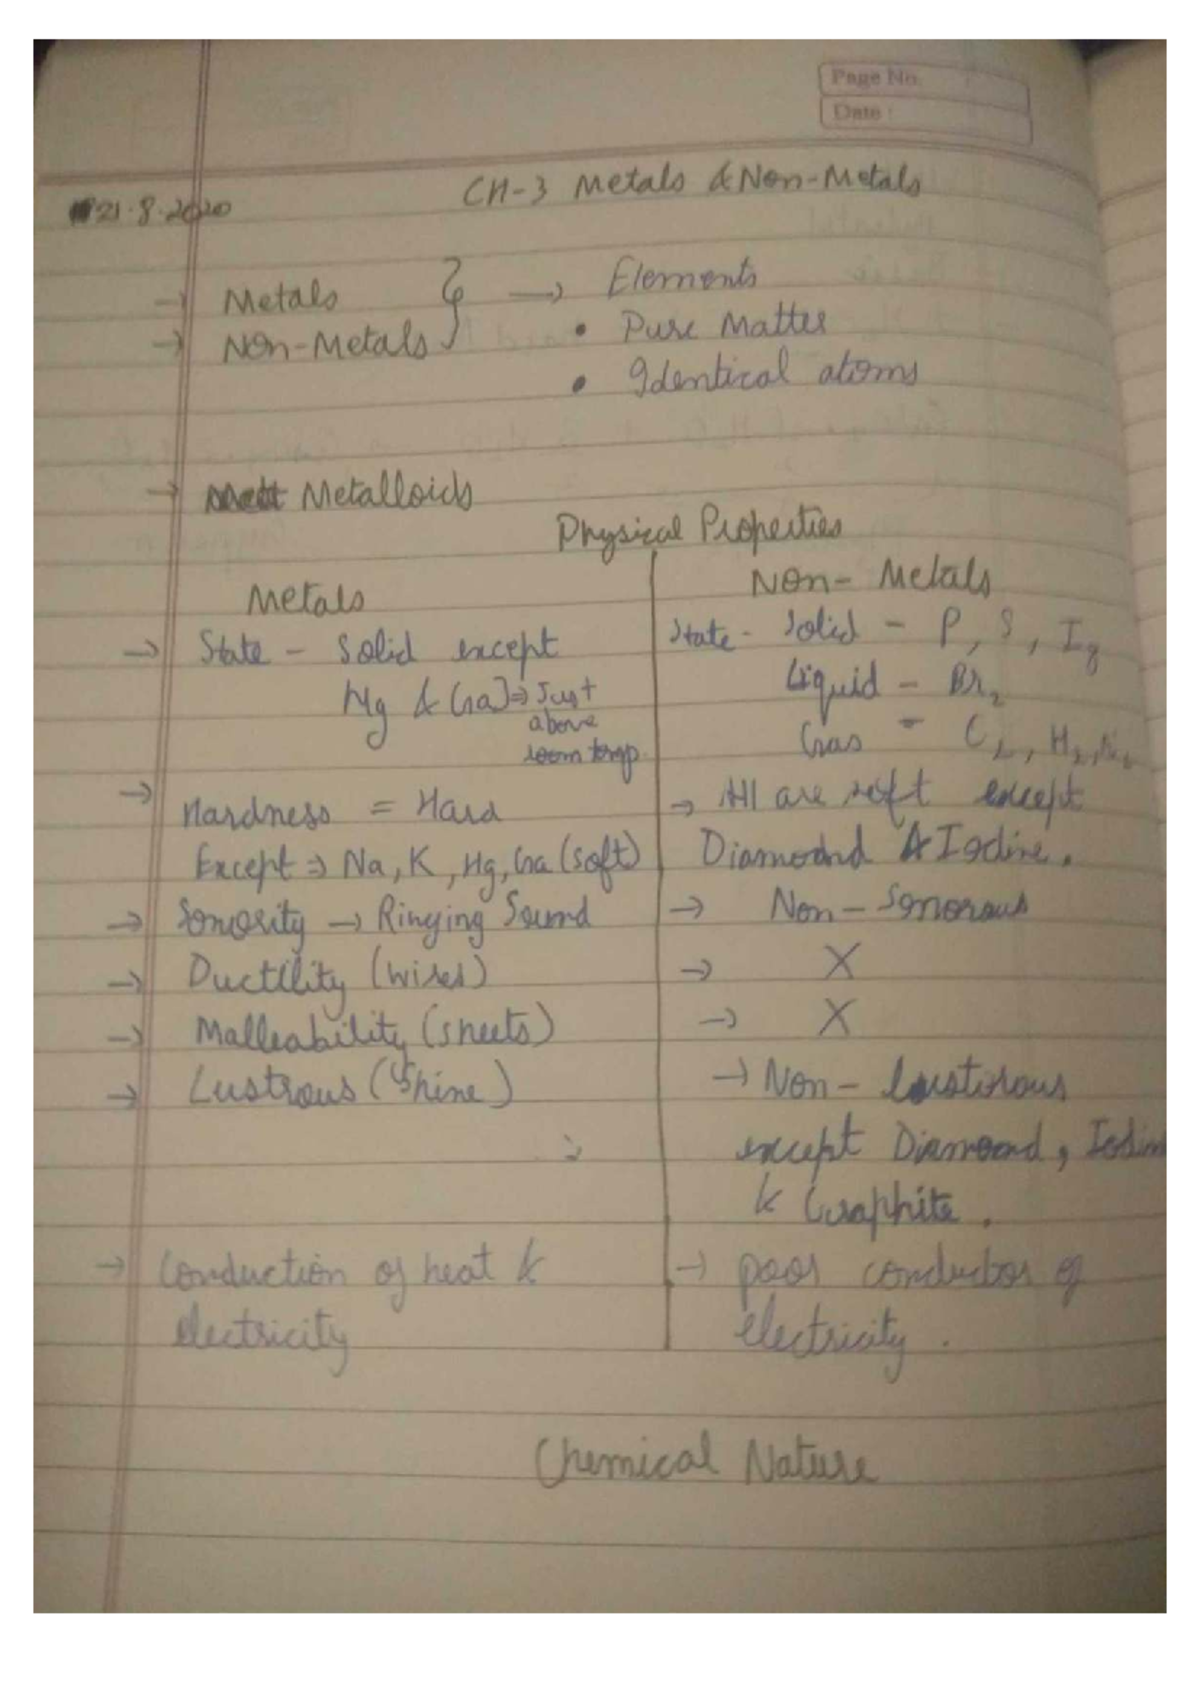 Page No.
Date :
CH-3 Metals & Non-Metals
21.8.2020
→ Metals → Elements
→ Non-Metals • Pure Matter
• Identical atoms
→ Metalloids
Physical Properties
Metals
→ State - Solid except
Hg & Ga] ⇒ Just
above
room temp.
→ Hardness = Hard
Except ⇒ Na, K, Hg, Ga (soft)
→ Sonority → Ringing Sound
→ Ductility (wires)
→ Malleability (sheets)
→ Lustrous (Shine)
→ Conduction of heat &
electricity
Non-Metals
State - Solid - P, S, I
Liquid - Br₂
Gas - C, H₂, N₂
→ All are soft except
Diamond & Iodine.
→ Non-Sonorous
→ X
→ X
→ Non-lustrous
except Diamond, Iodin
& Graphite.
→ poor conductor of
electricity.
Chemical Nature